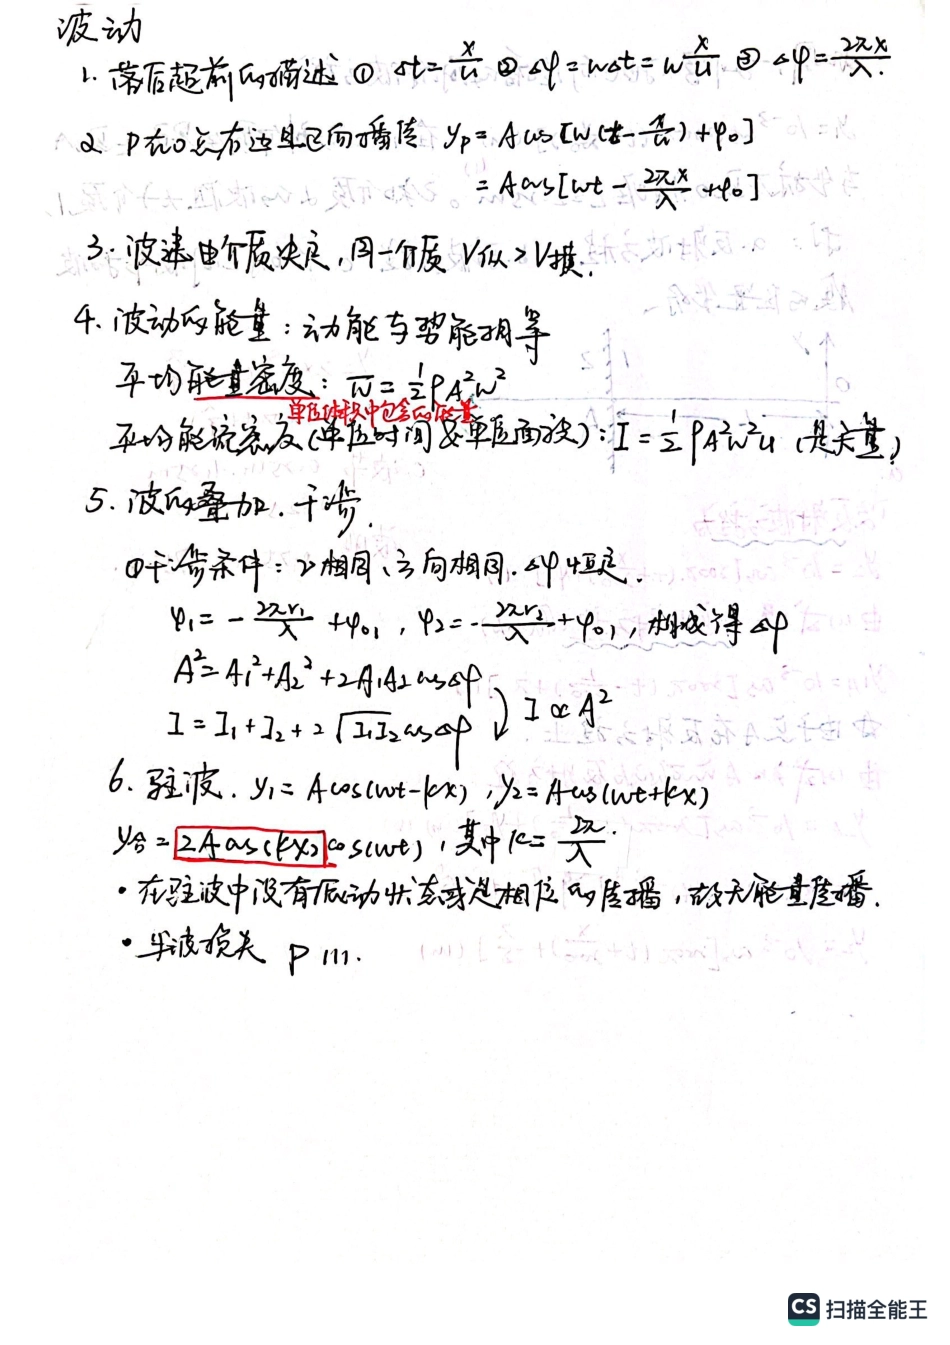 波动
1. 落后超前的描述 ① Δt = x/u ② Δφ = wΔt = w x/u ③ Δφ = 2πx/λ.
2. P在O点右边且正向传播 yp = A cos [w(t - x/u) + φ0]
= A cos [wt - 2πx/λ + φ0]
3. 波速由介质决定, 同一介质 V纵 > V横.
4. 波动的能量: 动能与势能相等
平均能量密度: w̅ = 1/2 ρA²w²
单位体积中包含的能量
平均能流密度(单位时间&单位面积): I = 1/2 ρA²w²u (是矢量)
5. 波的叠加. 干涉.
①干涉条件: ν相同、方向相同. Δφ恒定.
φ1 = - 2πr1/λ + φ01, φ2 = - 2πr2/λ + φ01, 相减得 Δφ
A² = A1² + A2² + 2A1A2 cosΔφ
I = I1 + I2 + 2√I1I2 cosΔφ I ∝ A²
6. 驻波. y1 = A cos(wt - kx), y2 = A cos(wt + kx)
y合 = 2A cos(kx) cos(wt), 其中 k = 2π/λ.
• 在驻波中没有振动状态或是相位的传播, 故无能量传播.
• 半波损失 P 111.
CS 扫描全能王